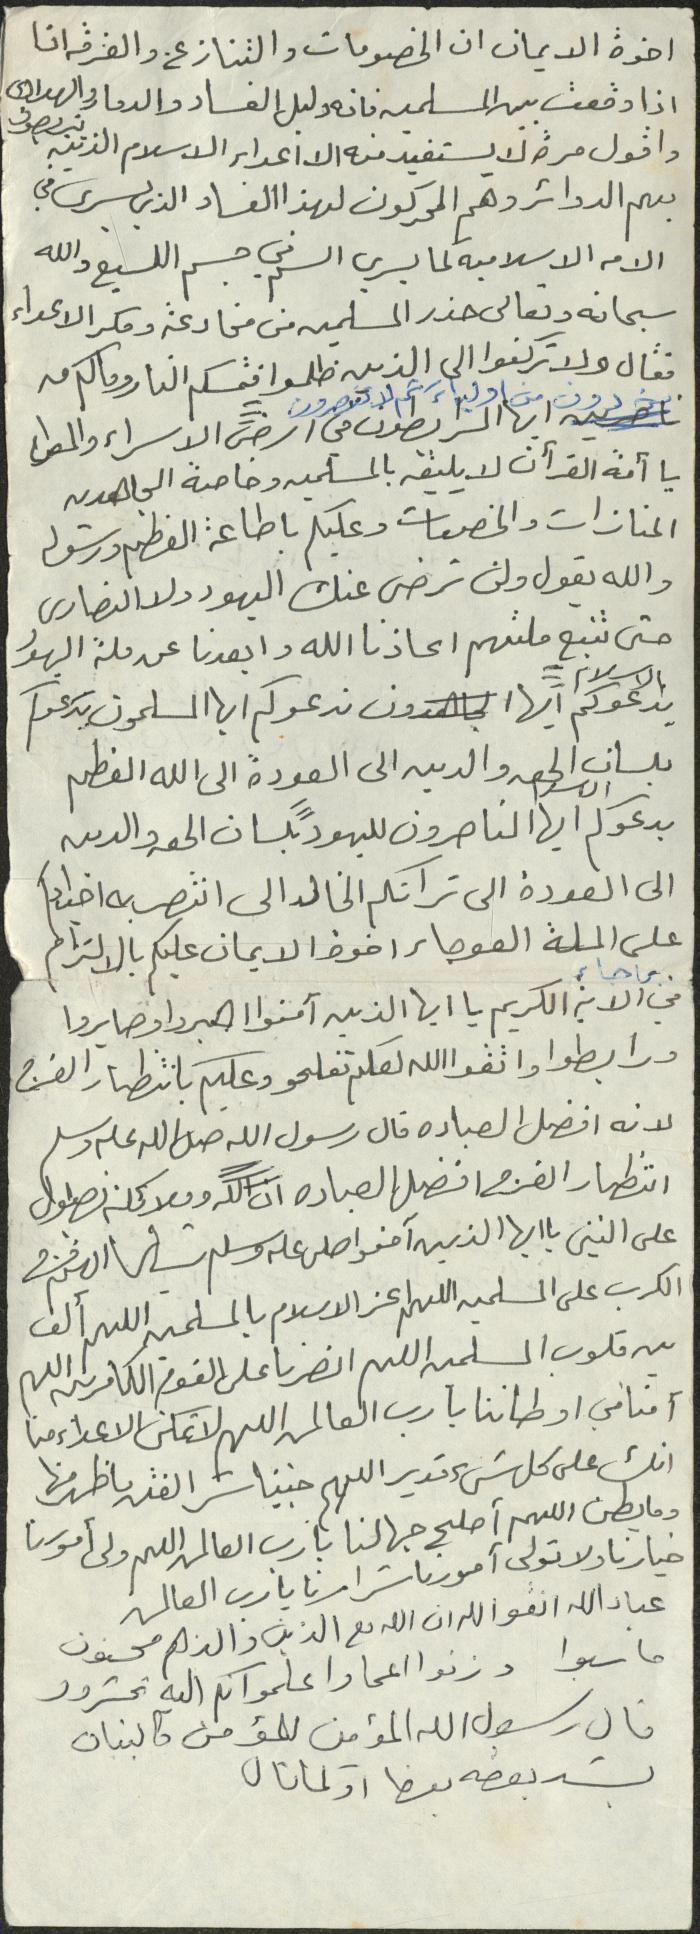 اخوة الايمان ان الخصومات والتنازع والفرقه انما
اذا وقعت بين المسلمين فانه دليل الفساد والدمار والهلاك
واقول مرة لا يستفيد منه الا اعداء الاسلام الذين يتربصون
بهم الدوائر وهم المحركون لهذا الفساد الذي يسري في
الامه الاسلامية كما يسري السم في جسم اللسيع والله
سبحانه وتعالى حذر المسلمين من مخادعة ومكر الاعداء
فقال ولا تركنوا الى الذين ظلموا فتمسكم النار ومالكم من
دون من اولياء ثم لا تنصرون
ايها المرابطون في ارض الاسراء والمعراج
يا أمة القرأن لا يليق بالمسلمين وخاصة المجاهدين
المنازات والخصومات وعليكم باطاعة العظيم ورسوله
والله يقول ولن ترضى عنك اليهود ولا النصارى
حتى تتبع ملتهم اعاذنا الله وابعدنا عن ملة اليهود
الاسلام
يدعوكم ايها المجاهدون ندعوكم ايها المسلمون يدعوكم
بلسان الحق والدين الى العودة الى الله العظيم
الاسلام
يدعوكم ايها المناصرون لليهود بلسان الحق والدين
الى العودة الى تراثكم الخالد الى انتصر به اجدادكم
على الملة العوجاء اخوة الايمان عليكم بالالتزام
بما جاء
في الاية الكريم يا ايها الذين آمنوا اصبروا وصابروا
ورابطوا واتقوا الله لعلكم تفلحو وعليكم بانتظار الفرج
لانه افضل العباده قال رسول الله صلى الله عليه وسلم
انتظار الفرج افضل العباده ان الله وملائكته يصلون
على النبي يا ايها الذين آمنوا صلو عليه وسلم تسليما اللهم فرج
الكرب على المسلمين اللهم اعز الاسلام بالمسلمين اللهم ألف
بين قلوب المسلمين اللهم انصرنا على القوم الكافرين اللهم
أمنا في اوطاننا يا رب العالمين اللهم لا تمكن الاعداء منا
انك على كل شيء قدير اللهم جنبنا شر الفتن ما ظهر منها
وما بطن اللهم أصلح جهالنا يا رب العالمين اللهم ولى أمورنا
خيارنا ولا تولى أمورنا شرارنا يا رب العالمين
عباد الله اتقوا الله ان الله مع الذين والذهم محسنون
حاسبوا وزنوا اعما واعلموا انكم اليه تحشرون
قال رسول الله المؤمن للمؤمن كالبنيان
يشد بعضه بعضا او كما قال